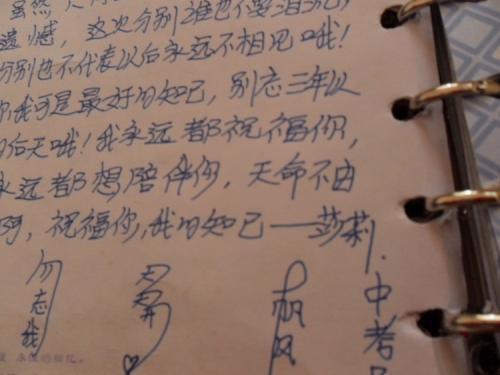 虽然
遗憾，这次分别谁也不要泪
分别也不代表以后永远不相见哦！
你我可是最好的知已，别忘三年以
后天哦！我永远都祝福你，
永远都想陪伴你，天命不由
阿，祝福你，我的知已——莎莉.
勿忘我
帆风
中考
永恒的